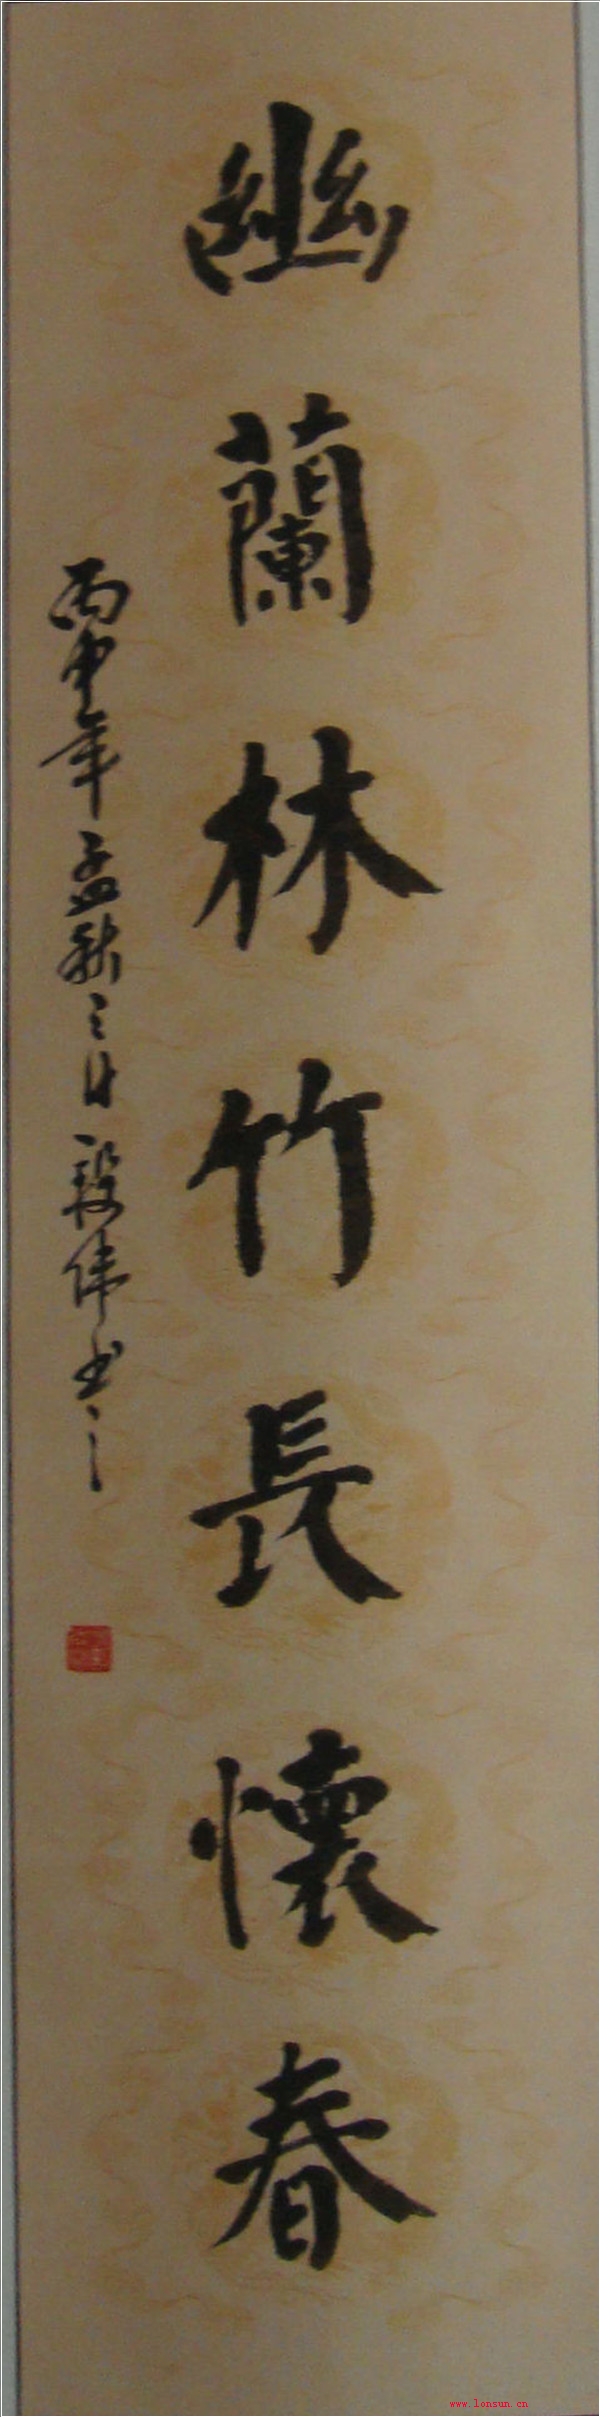 幽蘭林竹長懷春
丙申年孟秋之日段偉书之
www.lonsun.cn